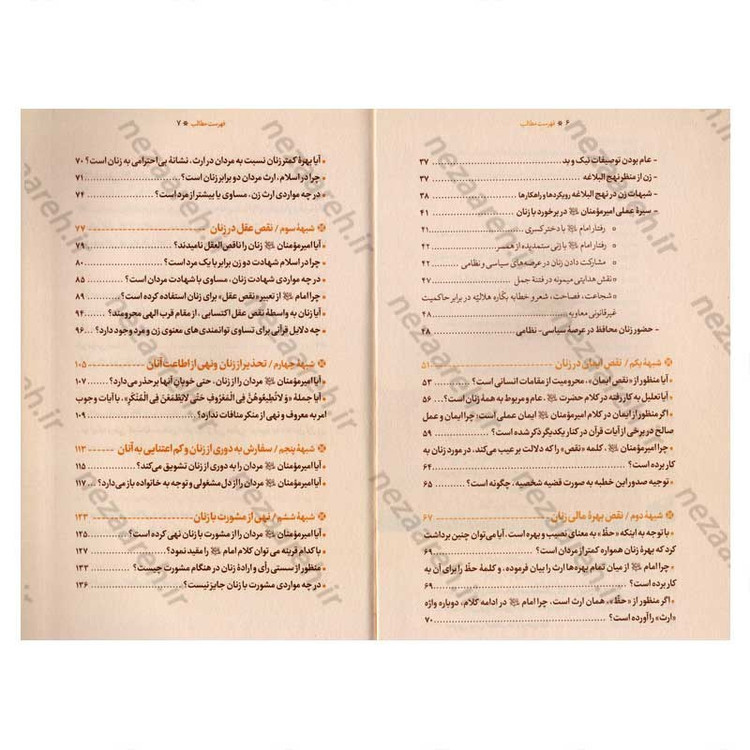 ۶ * فهرست مطالب
- عام بودن توصیفات نیک و بد ۳۷
- زن از منظر نهج البلاغه ۳۷
- شبهات زن در نهج البلاغه رویکردها و راهکارها ۳۸
- سیرۀ عملی امیرمؤمنان در برخورد با زنان ۴۱
○ رفتار امام با دختر کسری ۴۱
○ رفتار امام با زنی ستمدیده از همسر ۴۲
○ مشارکت دادن زنان در عرصه‌های سیاسی و نظامی ۴۲
○ نقش هدایتی میمونه در فتنۀ جمل ۴۷
○ شجاعت، فصاحت، شعر و خطابه بکّاره هلالیّه در برابر حاکمیت
غیرقانونی معاویه ۴۸
- حضور زنان محافظ در عرصۀ سیاسی- نظامی ۴۸
شبهۀ یکم / نقص ایمان در زنان ۵۱
• آیا منظور از «نقص ایمان»، محرومیت از مقامات انسانی است؟ ۵۳
• آیا تعلیل به کار رفته در کلام حضرت، عام و مربوط به همۀ زنان است؟ ۵۶
• اگر منظور از ایمان در کلام امیرمؤمنان ایمان عملی است؛ چرا ایمان و عمل
صالح در برخی از آیات قرآن در کنار یکدیگر ذکر شده است؟ ۵۹
• چرا امیرمؤمنان، کلمه «نقص» را که دلالت بر عیب می‌کند، در مورد زنان به
کار برده است؟ ۶۴
• توجیه صدور این خطبه به صورت قضیه شخصیه، چگونه است؟ ۶۵
شبهۀ دوم / نقص بهرۀ مالی زنان ۶۷
• با توجه به اینکه «حظّ» به معنای نصیب و بهره است، آیا می‌توان چنین برداشت
کرد که بهرۀ زنان همواره کمتر از مردان است؟ ۶۹
• چرا امام از میان تمام بهره‌ها ارث را بیان فرموده، و کلمۀ حظّ را برای آن به
کار برده است؟ ۶۹
• اگر منظور از «حظّ»، همان ارث است، چرا امام در ادامه کلام، دوباره واژه
«ارث» را آورده است؟ ۷۰
فهرست مطالب * ۷
• آیا بهرۀ کمتر زنان نسبت به مردان در ارث، نشانۀ بی‌احترامی به زنان است؟ ۷۰
• چرا در اسلام، ارث مردان دو برابر زنان است؟ ۷۱
• در چه مواردی ارث زن، مساوی یا بیشتر از مرد است؟ ۷۴
شبهۀ سوم / نقص عقل در زنان ۷۷
• آیا امیرمؤمنان زنان را ناقص‌العقل نامیدند؟ ۷۹
• چرا در اسلام شهادت دو زن برابر با یک مرد است؟ ۸۰
• در چه مواردی شهادت زنان، مساوی با شهادت مردان است؟ ۸۵
• چرا امام از تعبیر «نقص عقل» برای زنان استفاده کرده است؟ ۸۹
• آیا زنان به واسطۀ نقص عقل اکتسابی، از مقام قرب الهی محرومند؟ ۹۴
• چه دلایل قرآنی برای تساوی توانمندی‌های معنوی زن و مرد وجود دارد؟ ۹۶
شبهۀ چهارم / تحذیر از زنان و نهی از اطاعت آنان ۱۰۵
• آیا امیرمؤمنان مردان را از زنان، حتی خوبان آنها برحذر می‌دارد؟ ۱۰۷
• آیا جملۀ «وَ لَا تُطِیعُوهُنَّ فِی الْمَعْرُوفِ حَتَّی لَا یَطْمَعْنَ فِی الْمُنْکَرِ»، با آیات وجوب
امر به معروف و نهی از منکر منافات ندارد؟ ۱۰۹
شبهۀ پنجم / سفارش به دوری از زنان و کم اعتنایی به آنان ۱۱۳
• آیا امیرمؤمنان مردان را به دوری از زنان تشویق می‌کند؟ ۱۱۵
• آیا امیرمؤمنان مردان را از دل مشغولی و توجه به خانواده باز می‌دارد؟ ۱۱۷
شبهۀ ششم / نهی از مشورت با زنان ۱۲۳
• آیا امیرمؤمنان مردان را از مشورت با زنان نهی کرده است؟ ۱۲۵
• با کدام قرینه می‌توان کلام امام را مقید نمود؟ ۱۲۷
• منظور از سستی رأی و ارادۀ زنان در هنگام مشورت چیست؟ ۱۳۳
• در چه مواردی مشورت با زنان جایز نیست؟ ۱۳۶
nezaareh.ir